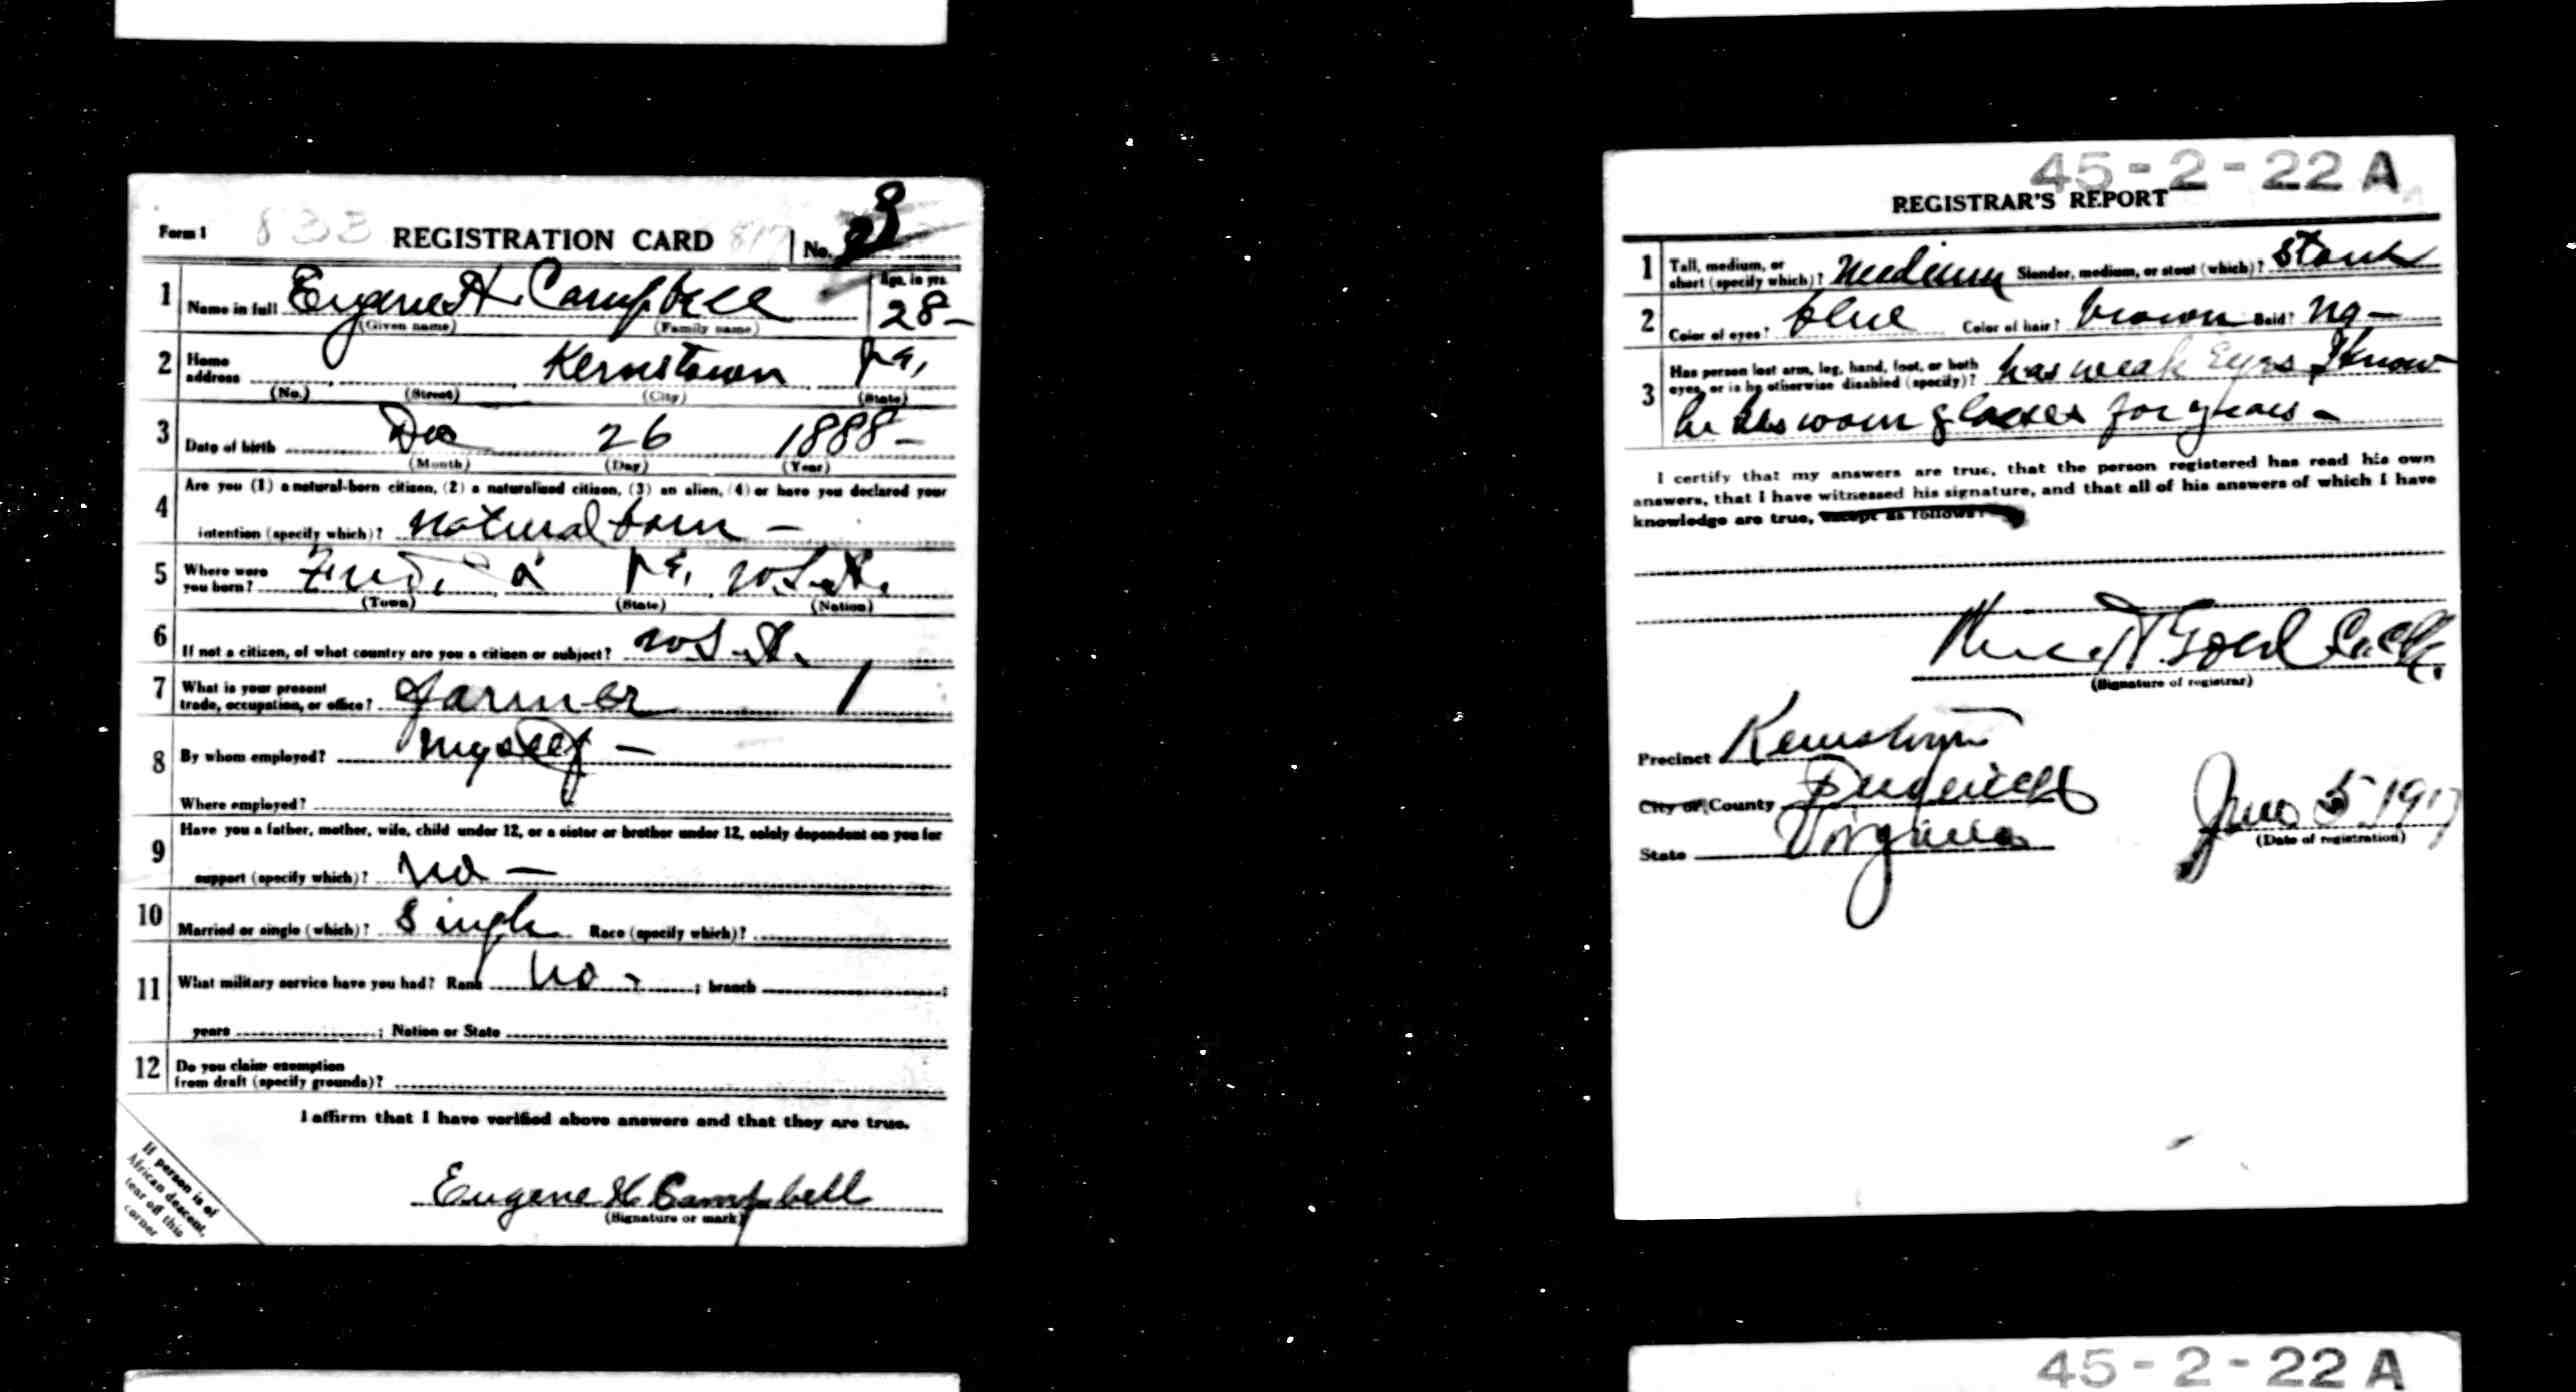 Form 1 833 REGISTRATION CARD 817 No. 28
1 Name in full Eugene H. Campbell Age, in yrs. 28-
(Given name) (Family name)
2 Home address Kernstown Va,
(No.) (Street) (City) (State)
3 Date of birth Dec 26 1888-
(Month) (Day) (Year)
4 Are you (1) a natural-born citizen, (2) a naturalized citizen, (3) an alien, (4) or have you declared your
intention (specify which)? natural born -
5 Where were you born? Fred. Co Va, U.S.A.
(Town) (State) (Nation)
6 If not a citizen, of what country are you a citizen or subject? U.S.A.
7 What is your present trade, occupation, or office? farmer 1
8 By whom employed? myself -
Where employed?
9 Have you a father, mother, wife, child under 12, or a sister or brother under 12, solely dependent on you for
support (specify which)? No -
10 Married or single (which)? Single Race (specify which)?
11 What military service have you had? Rank No - ; branch ;
years ; Nation or State
12 Do you claim exemption
from draft (specify grounds)?
I affirm that I have verified above answers and that they are true.
Eugene H Campbell
(Signature or mark)
If person is of
African descent,
tear off this
corner
45-2-22 A
REGISTRAR'S REPORT
1 Tall, medium, or short (specify which)? medium Slender, medium, or stout (which)? Stout
2 Color of eyes? blue Color of hair? brown Bald? No -
3 Has person lost arm, leg, hand, foot, or both eyes, or is he otherwise disabled (specify)? has weak Eyes, I know
he has worn glasses for years -
I certify that my answers are true, that the person registered has read his own
answers, that I have witnessed his signature, and that all of his answers of which I have
knowledge are true, except as follows:
(Signature of registrar)
Precinct Kernstown
City or County Frederick
State Virginia
June 5 1917
(Date of registration)
45-2-22 A